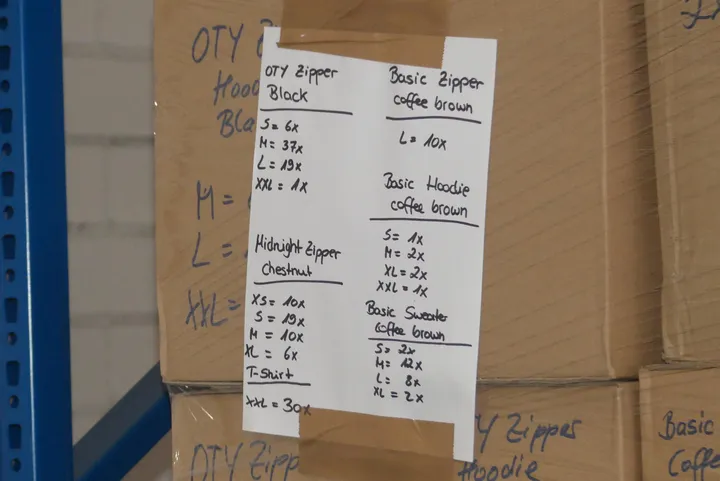 OTY Zipper
Black
S = 6x
M = 37x
L = 19x
XXL = 1x
Midnight Zipper
Chestnut
XS = 10x
S = 19x
M = 10x
XL = 6x
T-Shirt
XXL = 30x
Basic Zipper
coffee brown
L = 10x
Basic Hoodie
coffee brown
S = 1x
M = 2x
XL = 2x
XXL = 1x
Basic Sweater
coffee brown
S = 2x
M = 12x
L = 8x
XL = 2x
OTY
Hood
Bla
M =
L =
XXL=
OTY Zipp
Y Zipper
Hoodie
Basic
Coffe